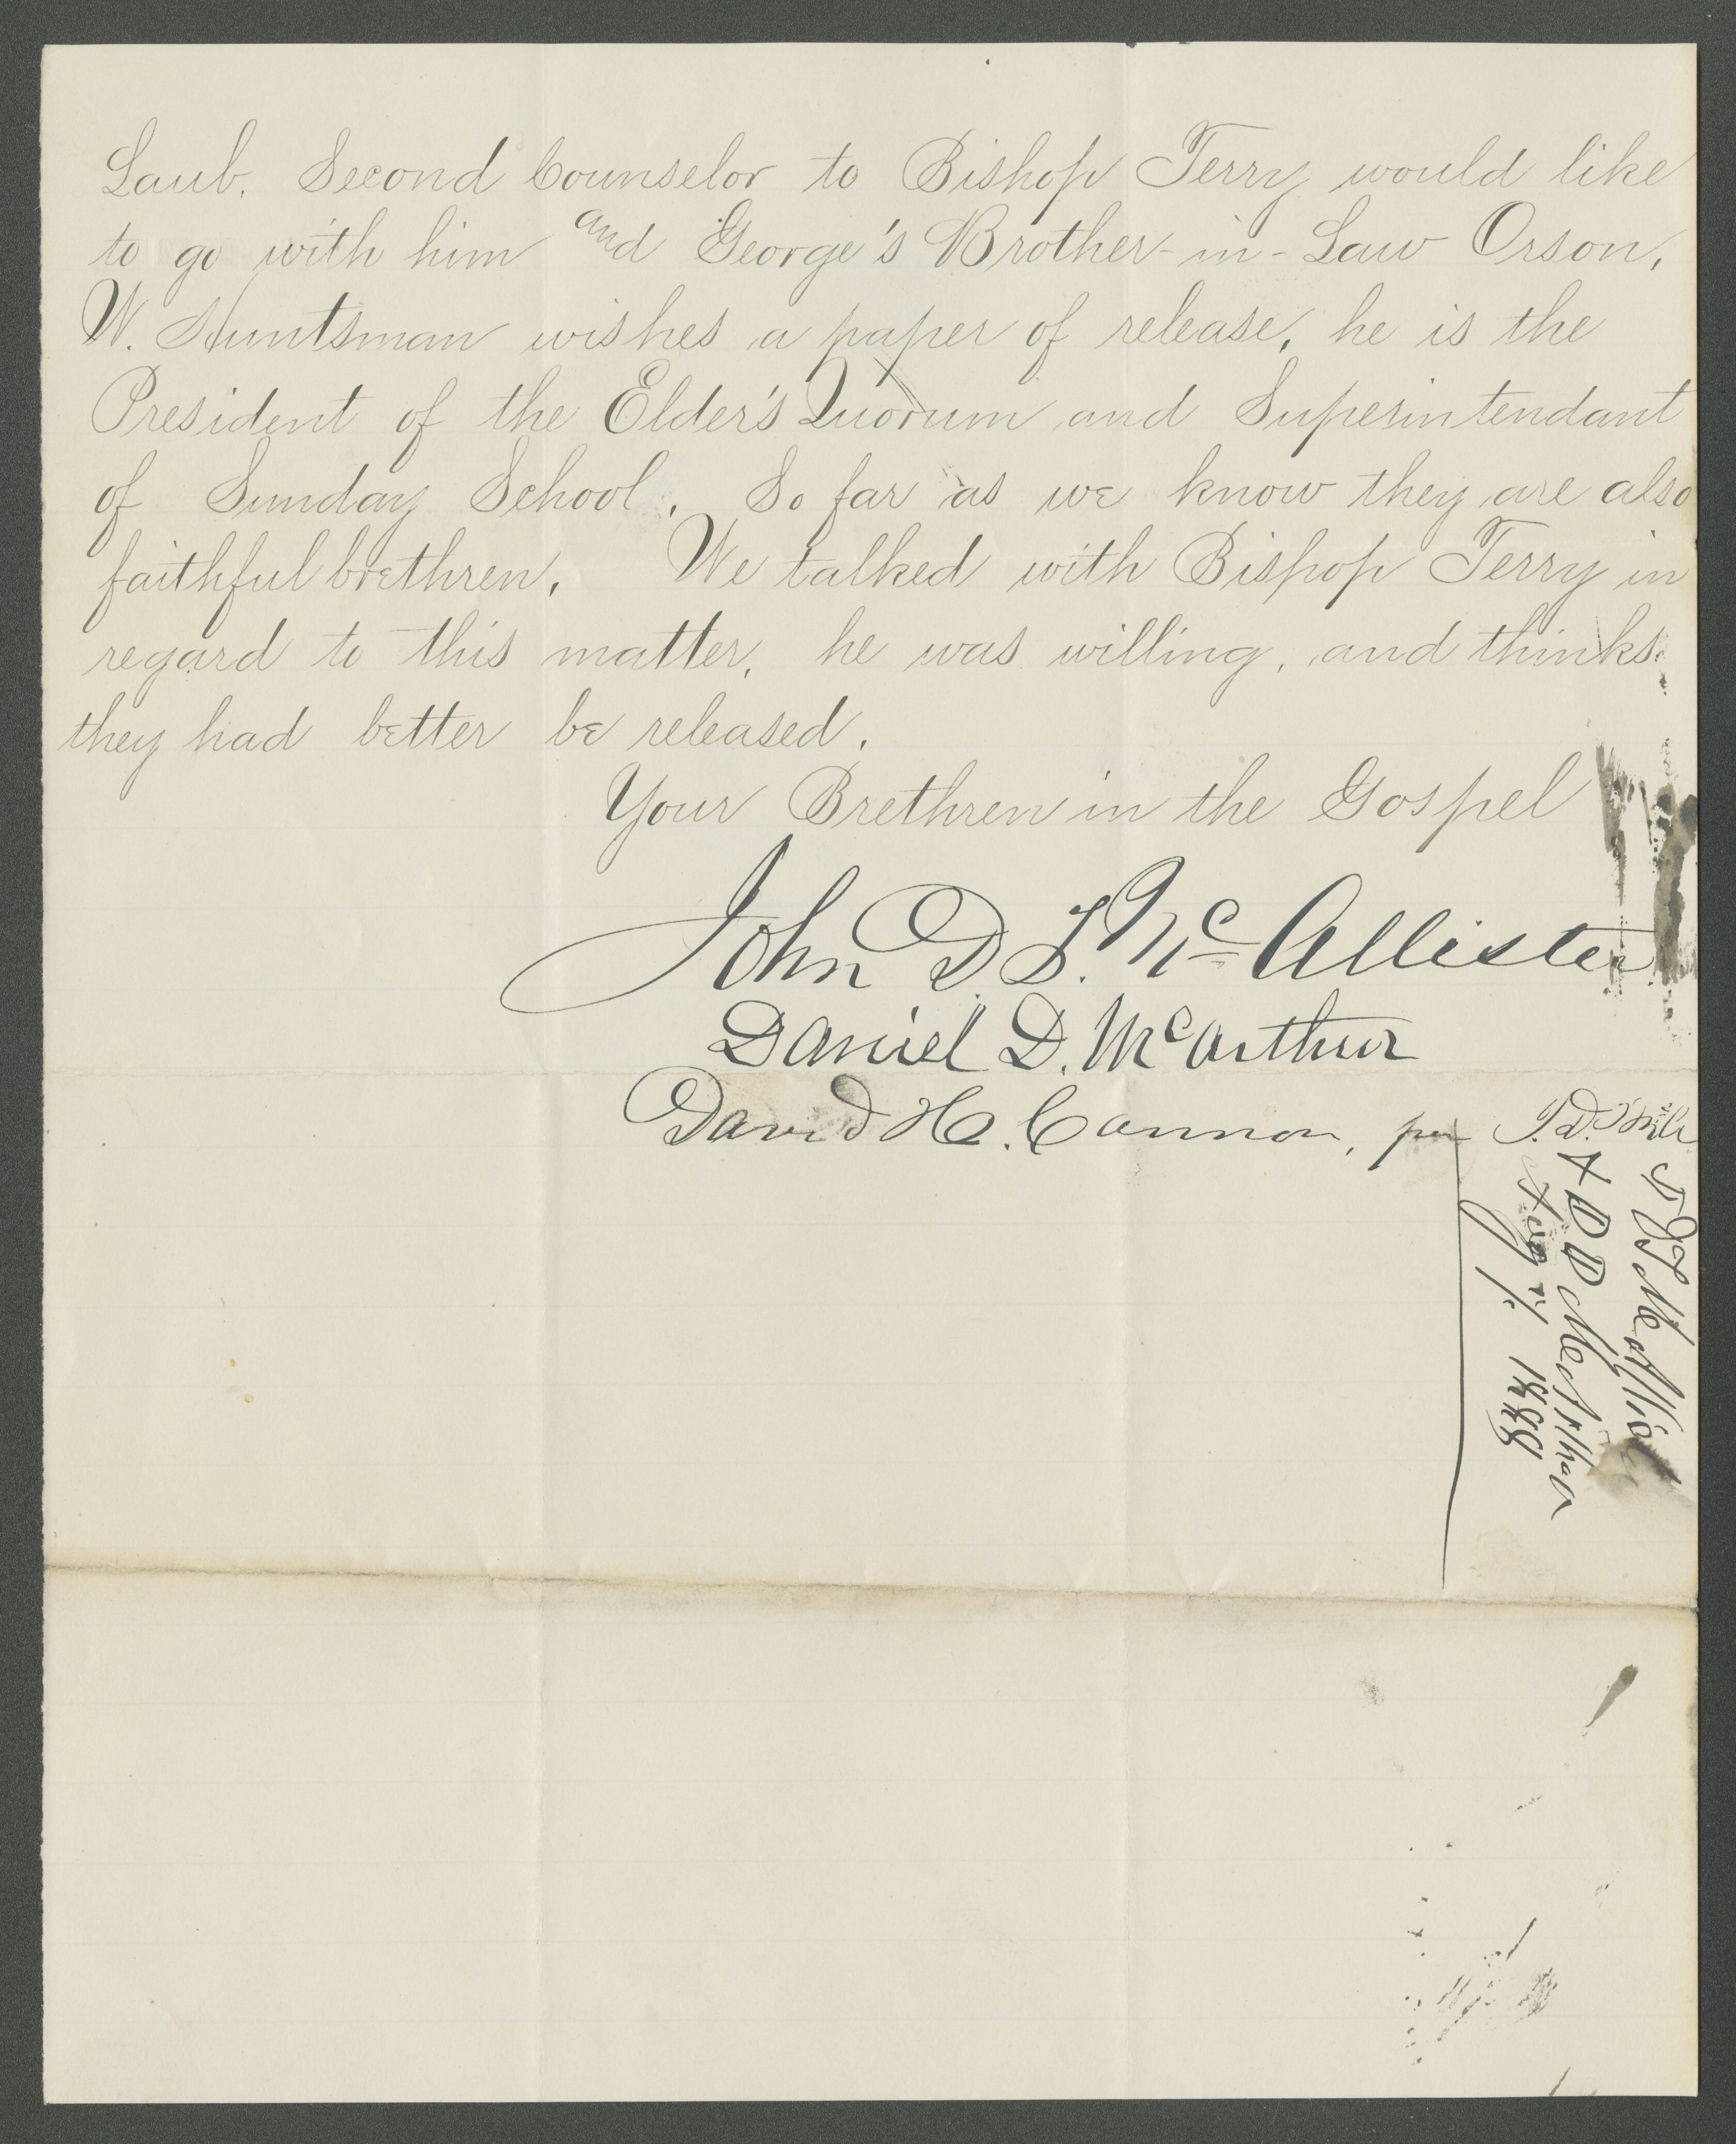 Laub. Second Counselor to Bishop Terry would like
to go with him and George's Brother-in-Law Orson,
W. Huntsman wishes a paper of release, he is the
President of the Elder's Quorum and Superintendant
of Sunday School. So far as we know they are also
faithful brethren. We talked with Bishop Terry in
regard to this matter, he was willing, and thinks
they had better be released.
Your Brethren in the Gospel
John D T. McAllister
Daniel D. McArthur
David H. Cannon, per
McAllister
& D D McArthur
1888